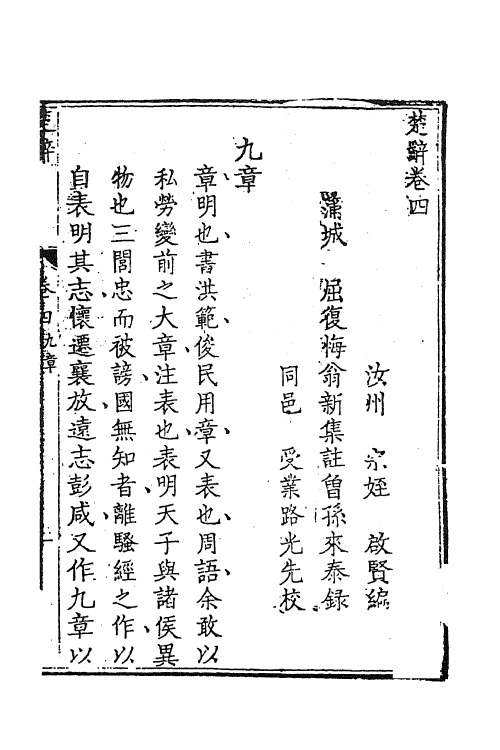 楚辭卷四
汝州 宗姪 啟賢編
蒲城 屈復悔翁新集註曾孫來泰錄
同邑 受業路光先校
九章
章明也書洪範俊民用章又表也周語余敢以
私勞變前之大章注表也表明天子與諸侯異
物也三閭忠而被謗國無知者離騷經之作以
自表明其志懷遷襄放遠志彭咸又作九章以
楚辭 卷四九章 一